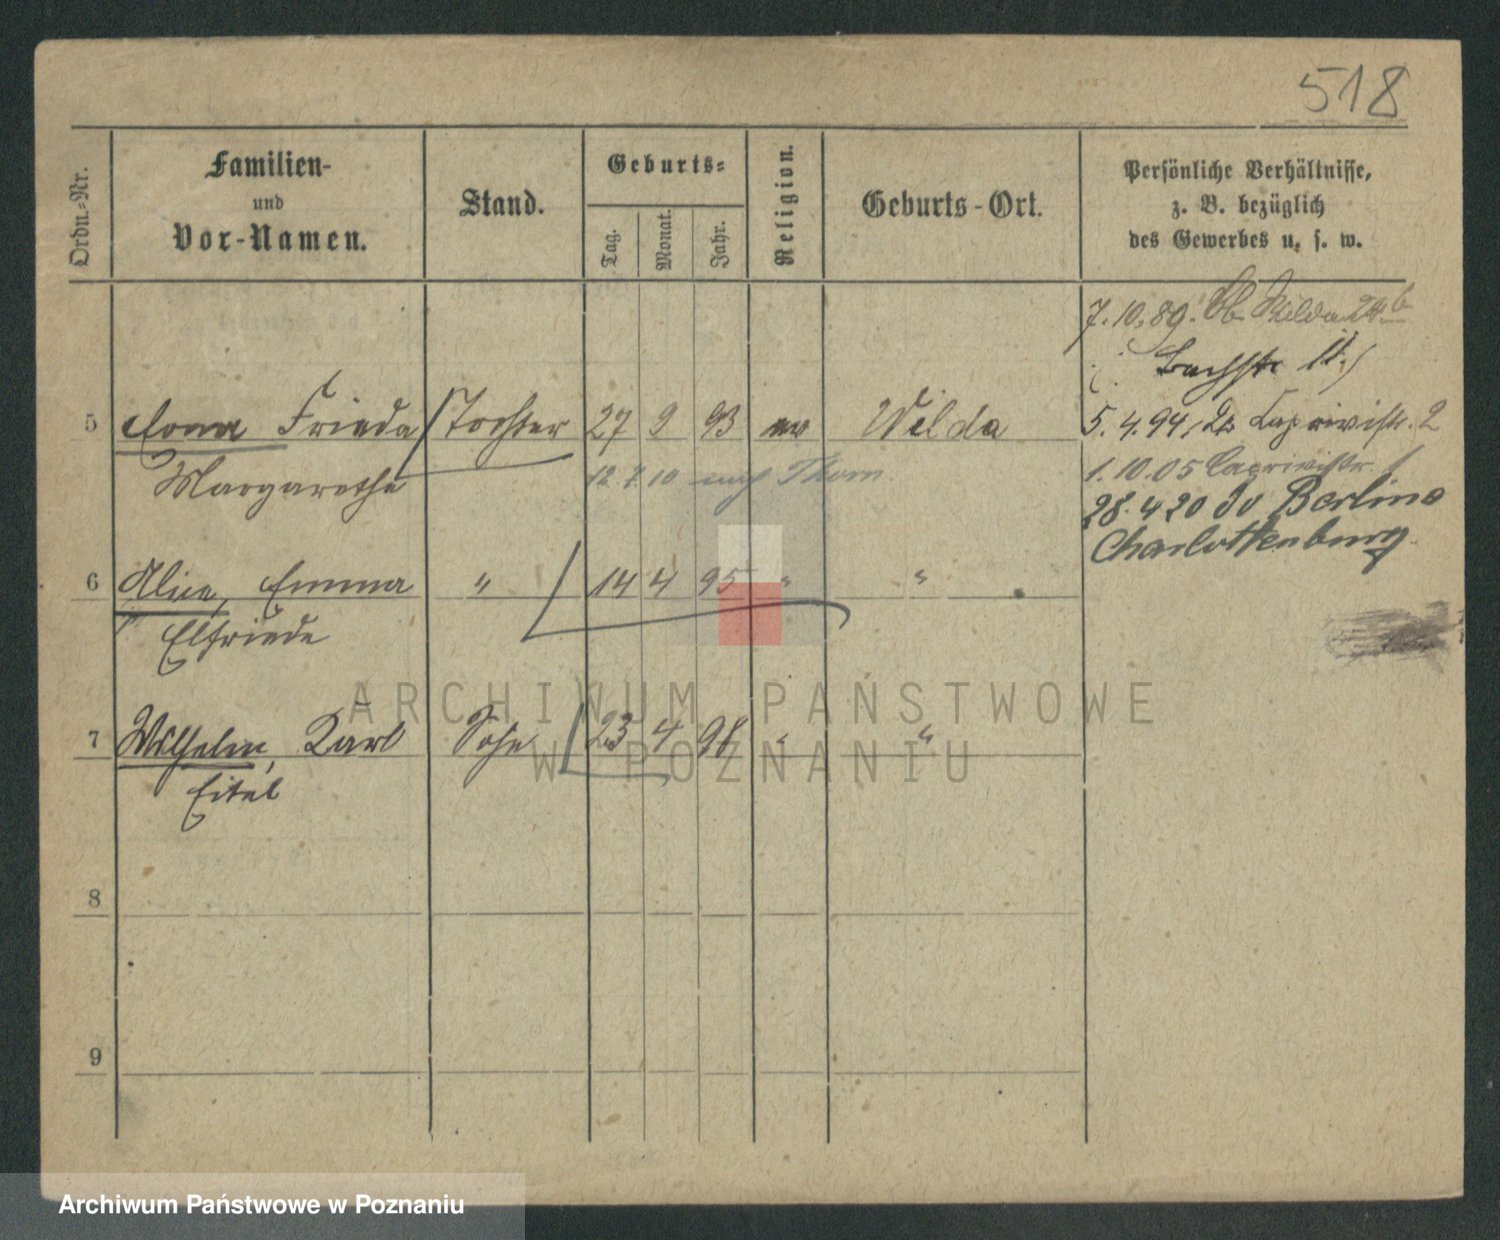 518
Ordn.-Nr.
Familien-
und
Vor-Namen.
Stand.
Geburts-
Tag.
Monat.
Jahr.
Religion.
Geburts-Ort.
Persönliche Verhältnisse,
z. B. bezüglich
des Gewerbes u. s. w.
7.10.89. Wilda 24b
5 Erna Frieda Tochter 27 9 93 ev Wilda
5.4.94, Caprivistr. 2
Margarethe
12.7.10 nach Thorn
1.10.05 Caprivistr. 1
28.4 20 Berlin
Charlottenburg
6 Alice, Emma " 14 4 95 " "
Elfriede
7 Wilhelm, Karl Sohn 23 4 98 " "
Eitel
8
9
ARCHIWUM PAŃSTWOWE
W POZNANIU
Archiwum Państwowe w Poznaniu